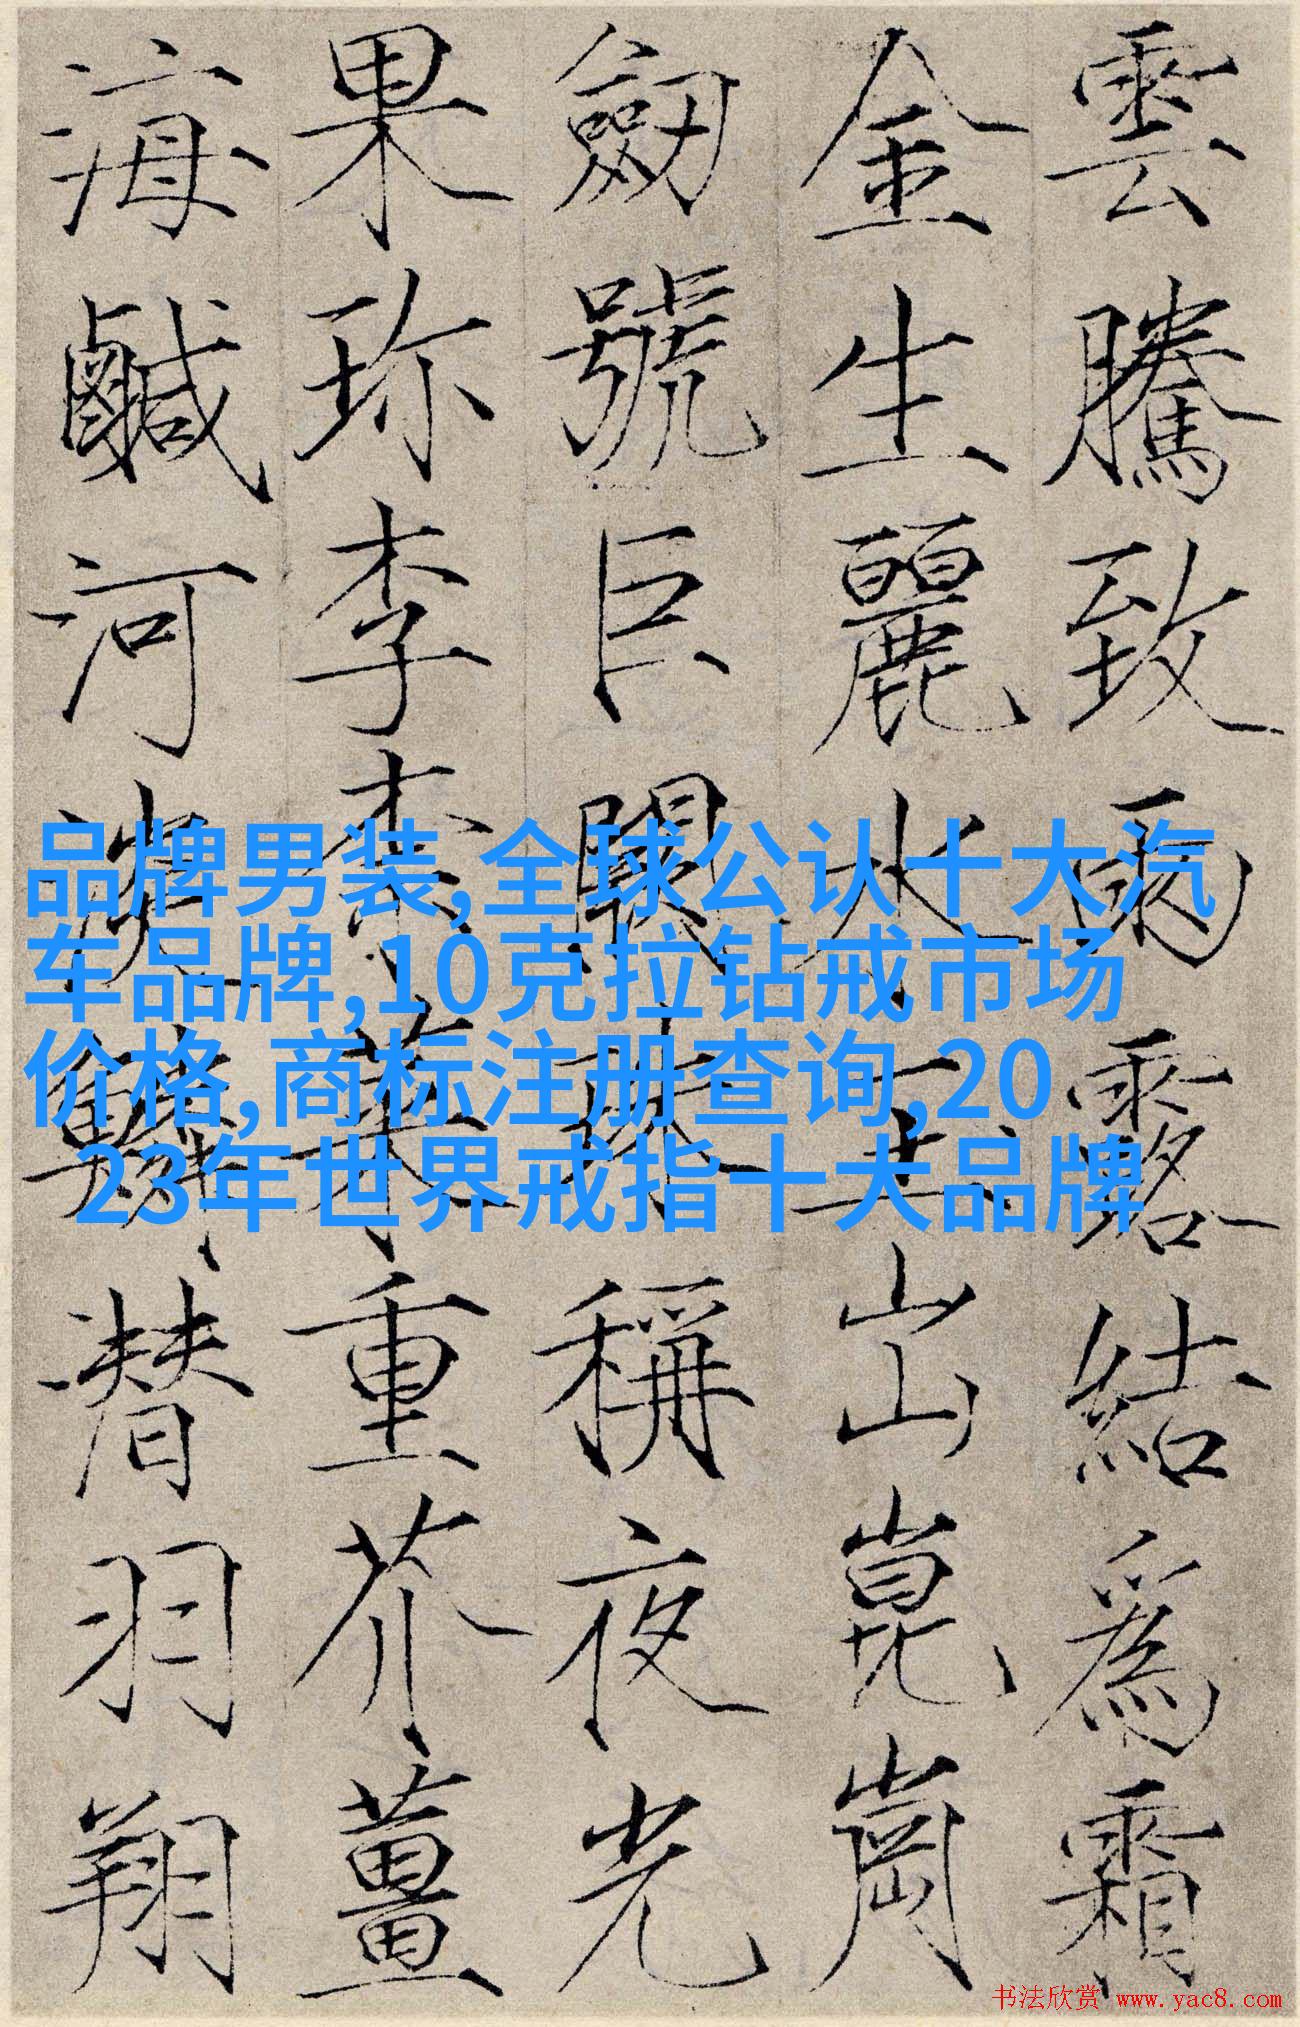 雲騰致雨露結爲霜
金生麗水玉出崑崗
劒號巨闕珠稱夜光
果珎李柰菜重芥薑
海鹹河淡鱗潜羽翔
品牌男装,全球公认十大汽
车品牌,10克拉钻戒市场
价格,商标注册查询,20
23年世界戒指十大品牌
书法欣赏 www.yac8.com